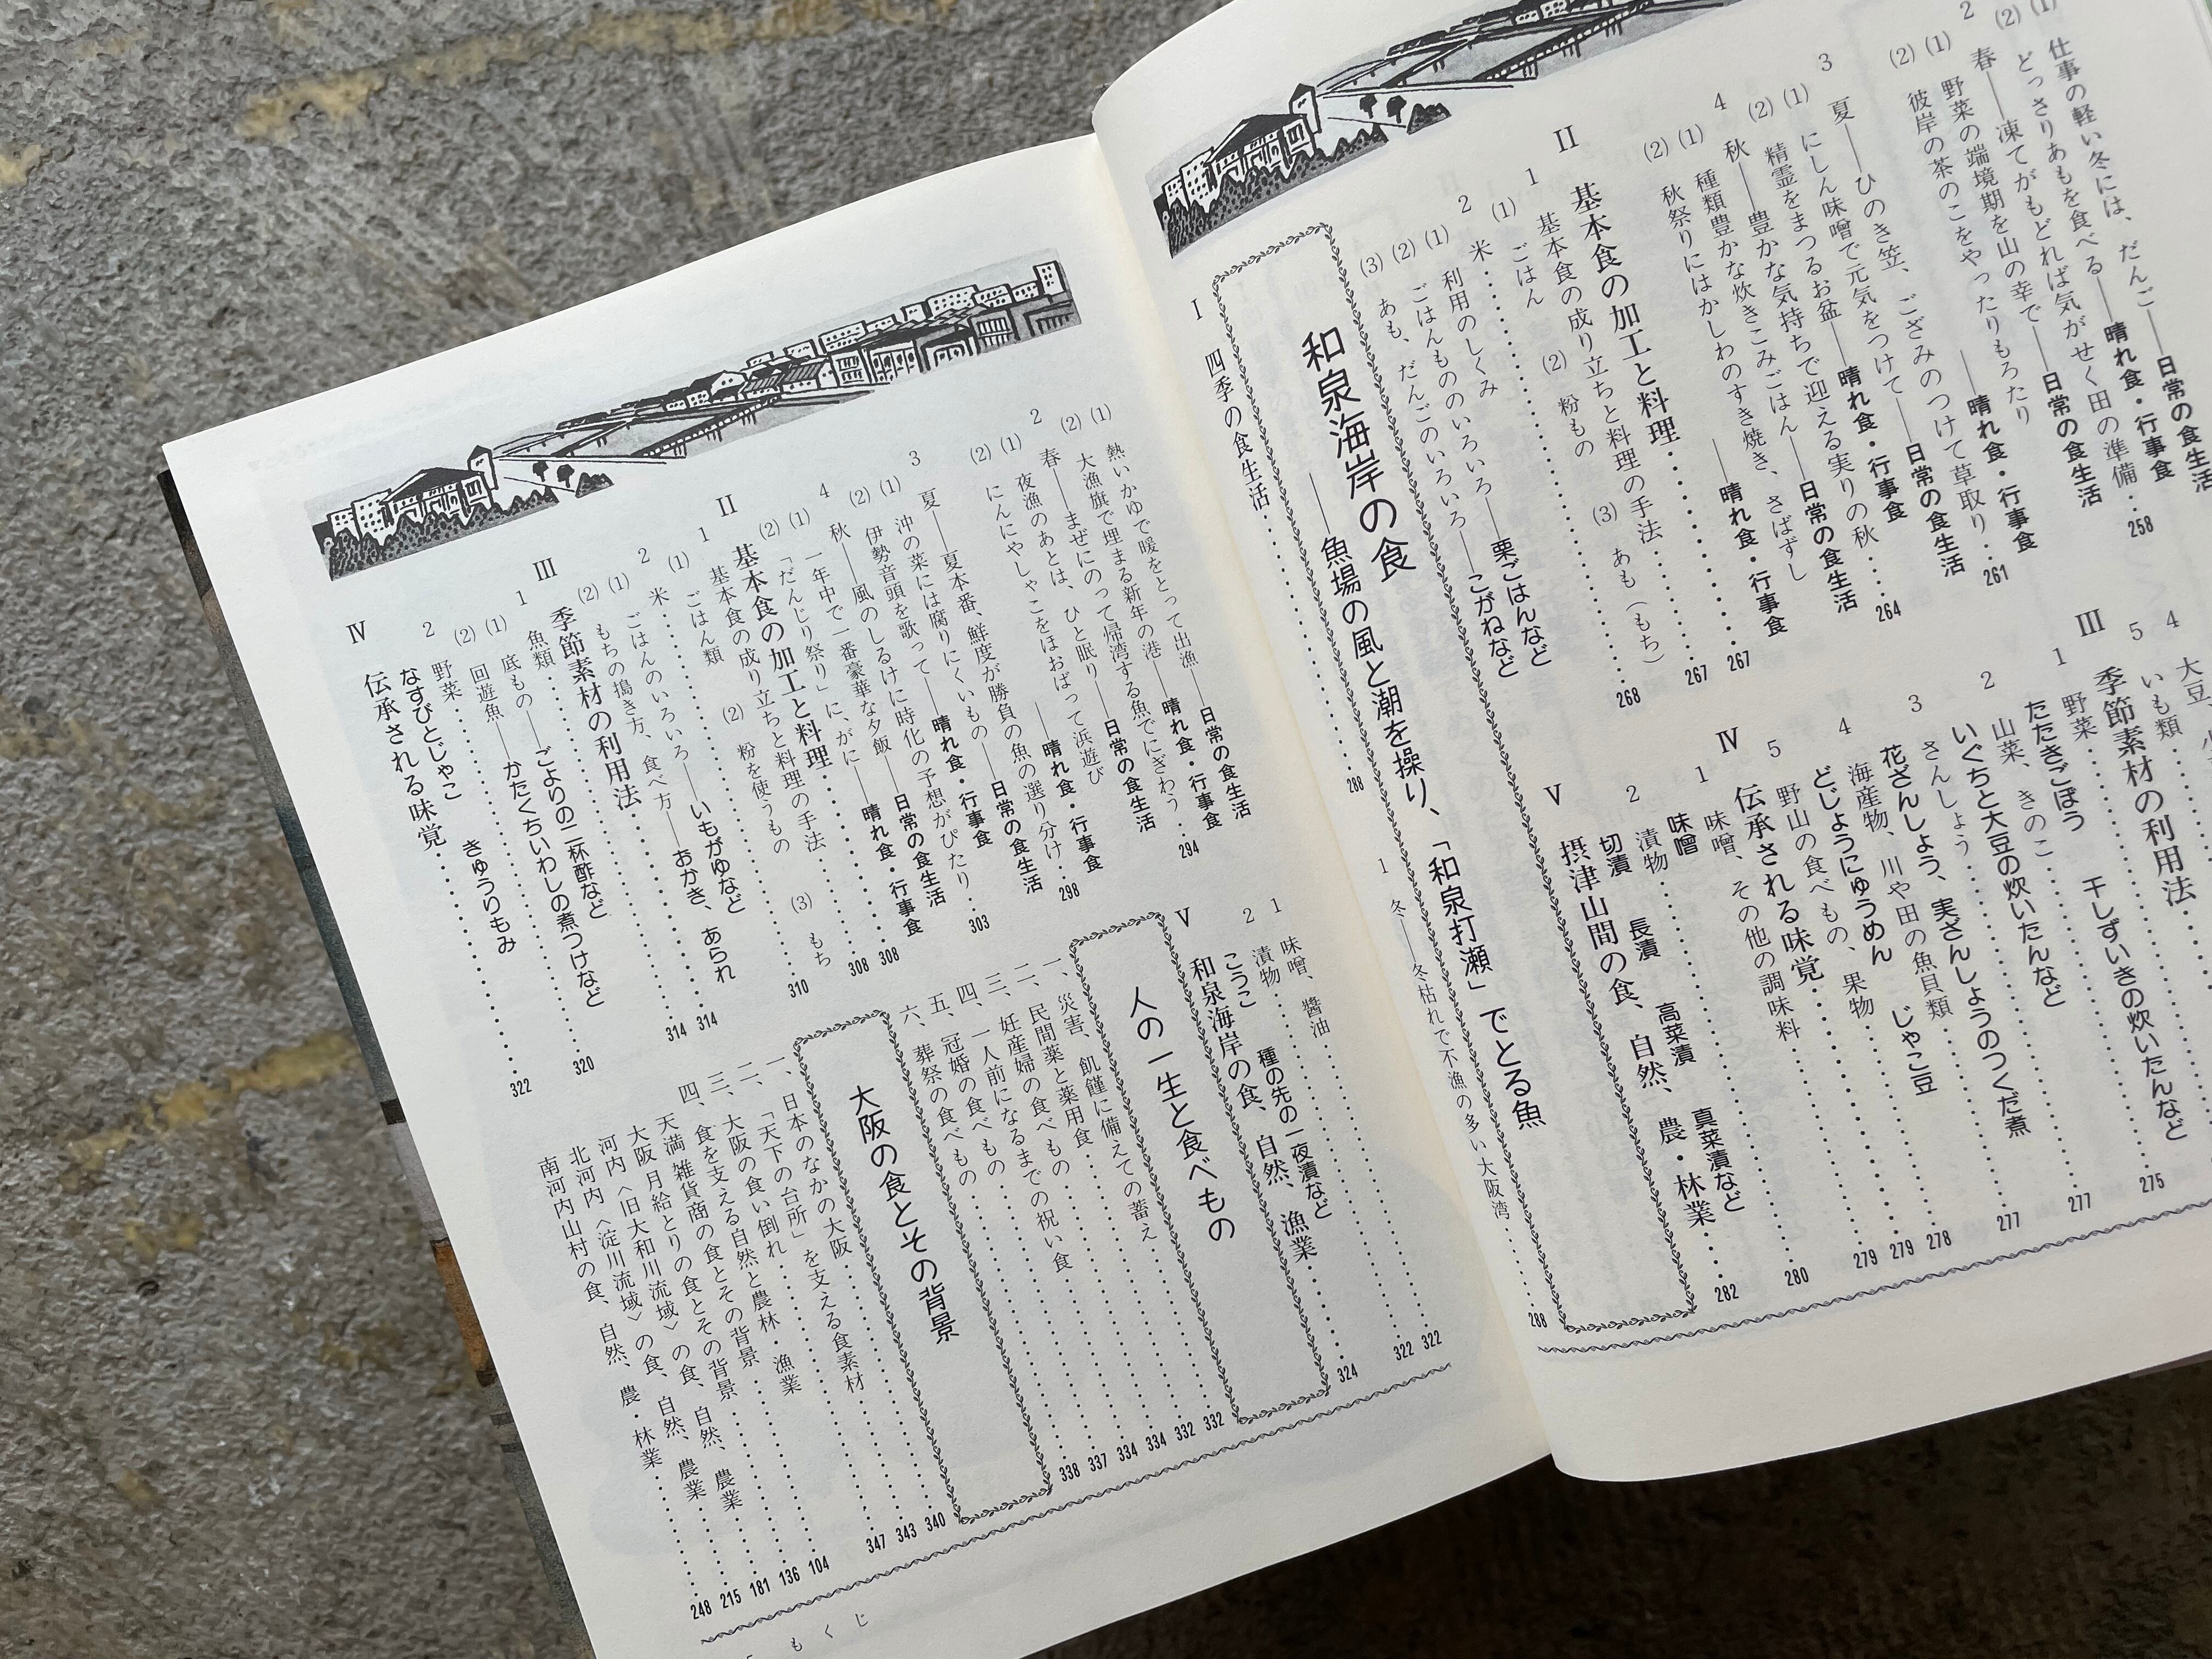 仕事の軽い冬には、だんご――日常の食生活
(1)
(2) どっさりあもを食べる――晴れ食・行事食
2 春――凍てがもどれば気がせく田の準備…258
(1) 野菜の端境期を山の幸で――日常の食生活
(2) 彼岸の茶のこをやったりもろたり――晴れ食・行事食
3 夏――ひのき笠、ござみのつけて草取り…261
(1) にしん味噌で元気をつけて――日常の食生活
(2) 精霊をまつるお盆――晴れ食・行事食
4 秋――豊かな気持ちで迎える実りの秋…264
(1) 種類豊かな炊きこみごはん――日常の食生活
(2) 秋祭りにはかしわのすき焼き、さばずし――晴れ食・行事食
II 基本食の加工と料理…267
1 基本食の成り立ちと料理の手法…267
(1) ごはん (2) 粉もの (3) あも(もち)
2 米…268
(1) 利用のしくみ
(2) ごはんもののいろいろ――栗ごはんなど
(3) あも、だんごのいろいろ――こがねなど
4 大豆
5 いも類
III 季節素材の利用法
1 野菜…275
たたきごぼう 干しずいきの炊いたんなど
2 山菜、きのこ…277
いぐちと大豆の炊いたんなど
3 さんしょう…277
花ざんしょう、実ざんしょうのつくだ煮
4 海産物、川や田の魚貝類…278
どじょうにゅうめん じゃこ豆
5 野山の食べもの、果物…279
IV 伝承される味覚…279
1 味噌、その他の調味料…280
味噌
2 漬物
切漬 長漬 高菜漬 真菜漬など
V 摂津山間の食、自然、農・林業…282
和泉海岸の食
――魚場の風と潮を操り、「和泉打瀬」でとる魚
I 四季の食生活…288
1 冬――冬枯れで不漁の多い大阪湾…288
(1) 熱いかゆで暖をとって出漁――日常の食生活
(2) 大漁旗で埋まる新年の港――晴れ食・行事食
2 春――まぜにのって帰湾する魚でにぎわう…294
(1) 夜漁のあとは、ひと眠り――日常の食生活
(2) にんにやしゃこをほおばって浜遊び――晴れ食・行事食
3 夏――夏本番、鮮度が勝負の魚の選り分け…298
(1) 沖の菜には腐りにくいもの――日常の食生活
(2) 伊勢音頭を歌って――晴れ食・行事食
4 秋――風のしるけに時化の予想がぴたり…303
(1) 一年中で一番豪華な夕飯――日常の食生活
(2) 「だんじり祭り」に、がに――晴れ食・行事食
II 基本食の加工と料理…308
1 基本食の成り立ちと料理の手法…308
(1) ごはん類 (2) 粉を使うもの (3) もち
2 米…310
(1) ごはんのいろいろ――いもがゆなど
(2) もちの搗き方、食べ方――おかき、あられ
III 季節素材の利用法…314
1 魚類…314
(1) 底もの――ごよりの二杯酢など
(2) 回遊魚――かたくちいわしの煮つけなど
2 野菜…320
なすびとじゃこ きゅうりもみ
IV 伝承される味覚…322
1 味噌、醬油…322
2 漬物…322
こうこ 種の先の一夜漬など
V 和泉海岸の食、自然、漁業…324
人の一生と食べもの
一、災害、飢饉に備えての蓄え…332
二、民間薬と薬用食…332
三、妊産婦の食べもの…334
四、一人前になるまでの祝い食…334
五、冠婚の食べもの…337
六、葬祭の食べもの…338
大阪の食とその背景
一、日本のなかの大阪…340
二、「天下の台所」を支える食素材…343
三、大阪の食い倒れ…347
四、食を支える自然と農林・漁業
天満 雑貨商の食とその背景…104
大阪 月給とりの食とその背景…136
河内〈旧大和川流域〉の食、自然、農業…181
北河内〈淀川流域〉の食、自然、農業…215
南河内山村の食、自然、農・林業…248
もくじ